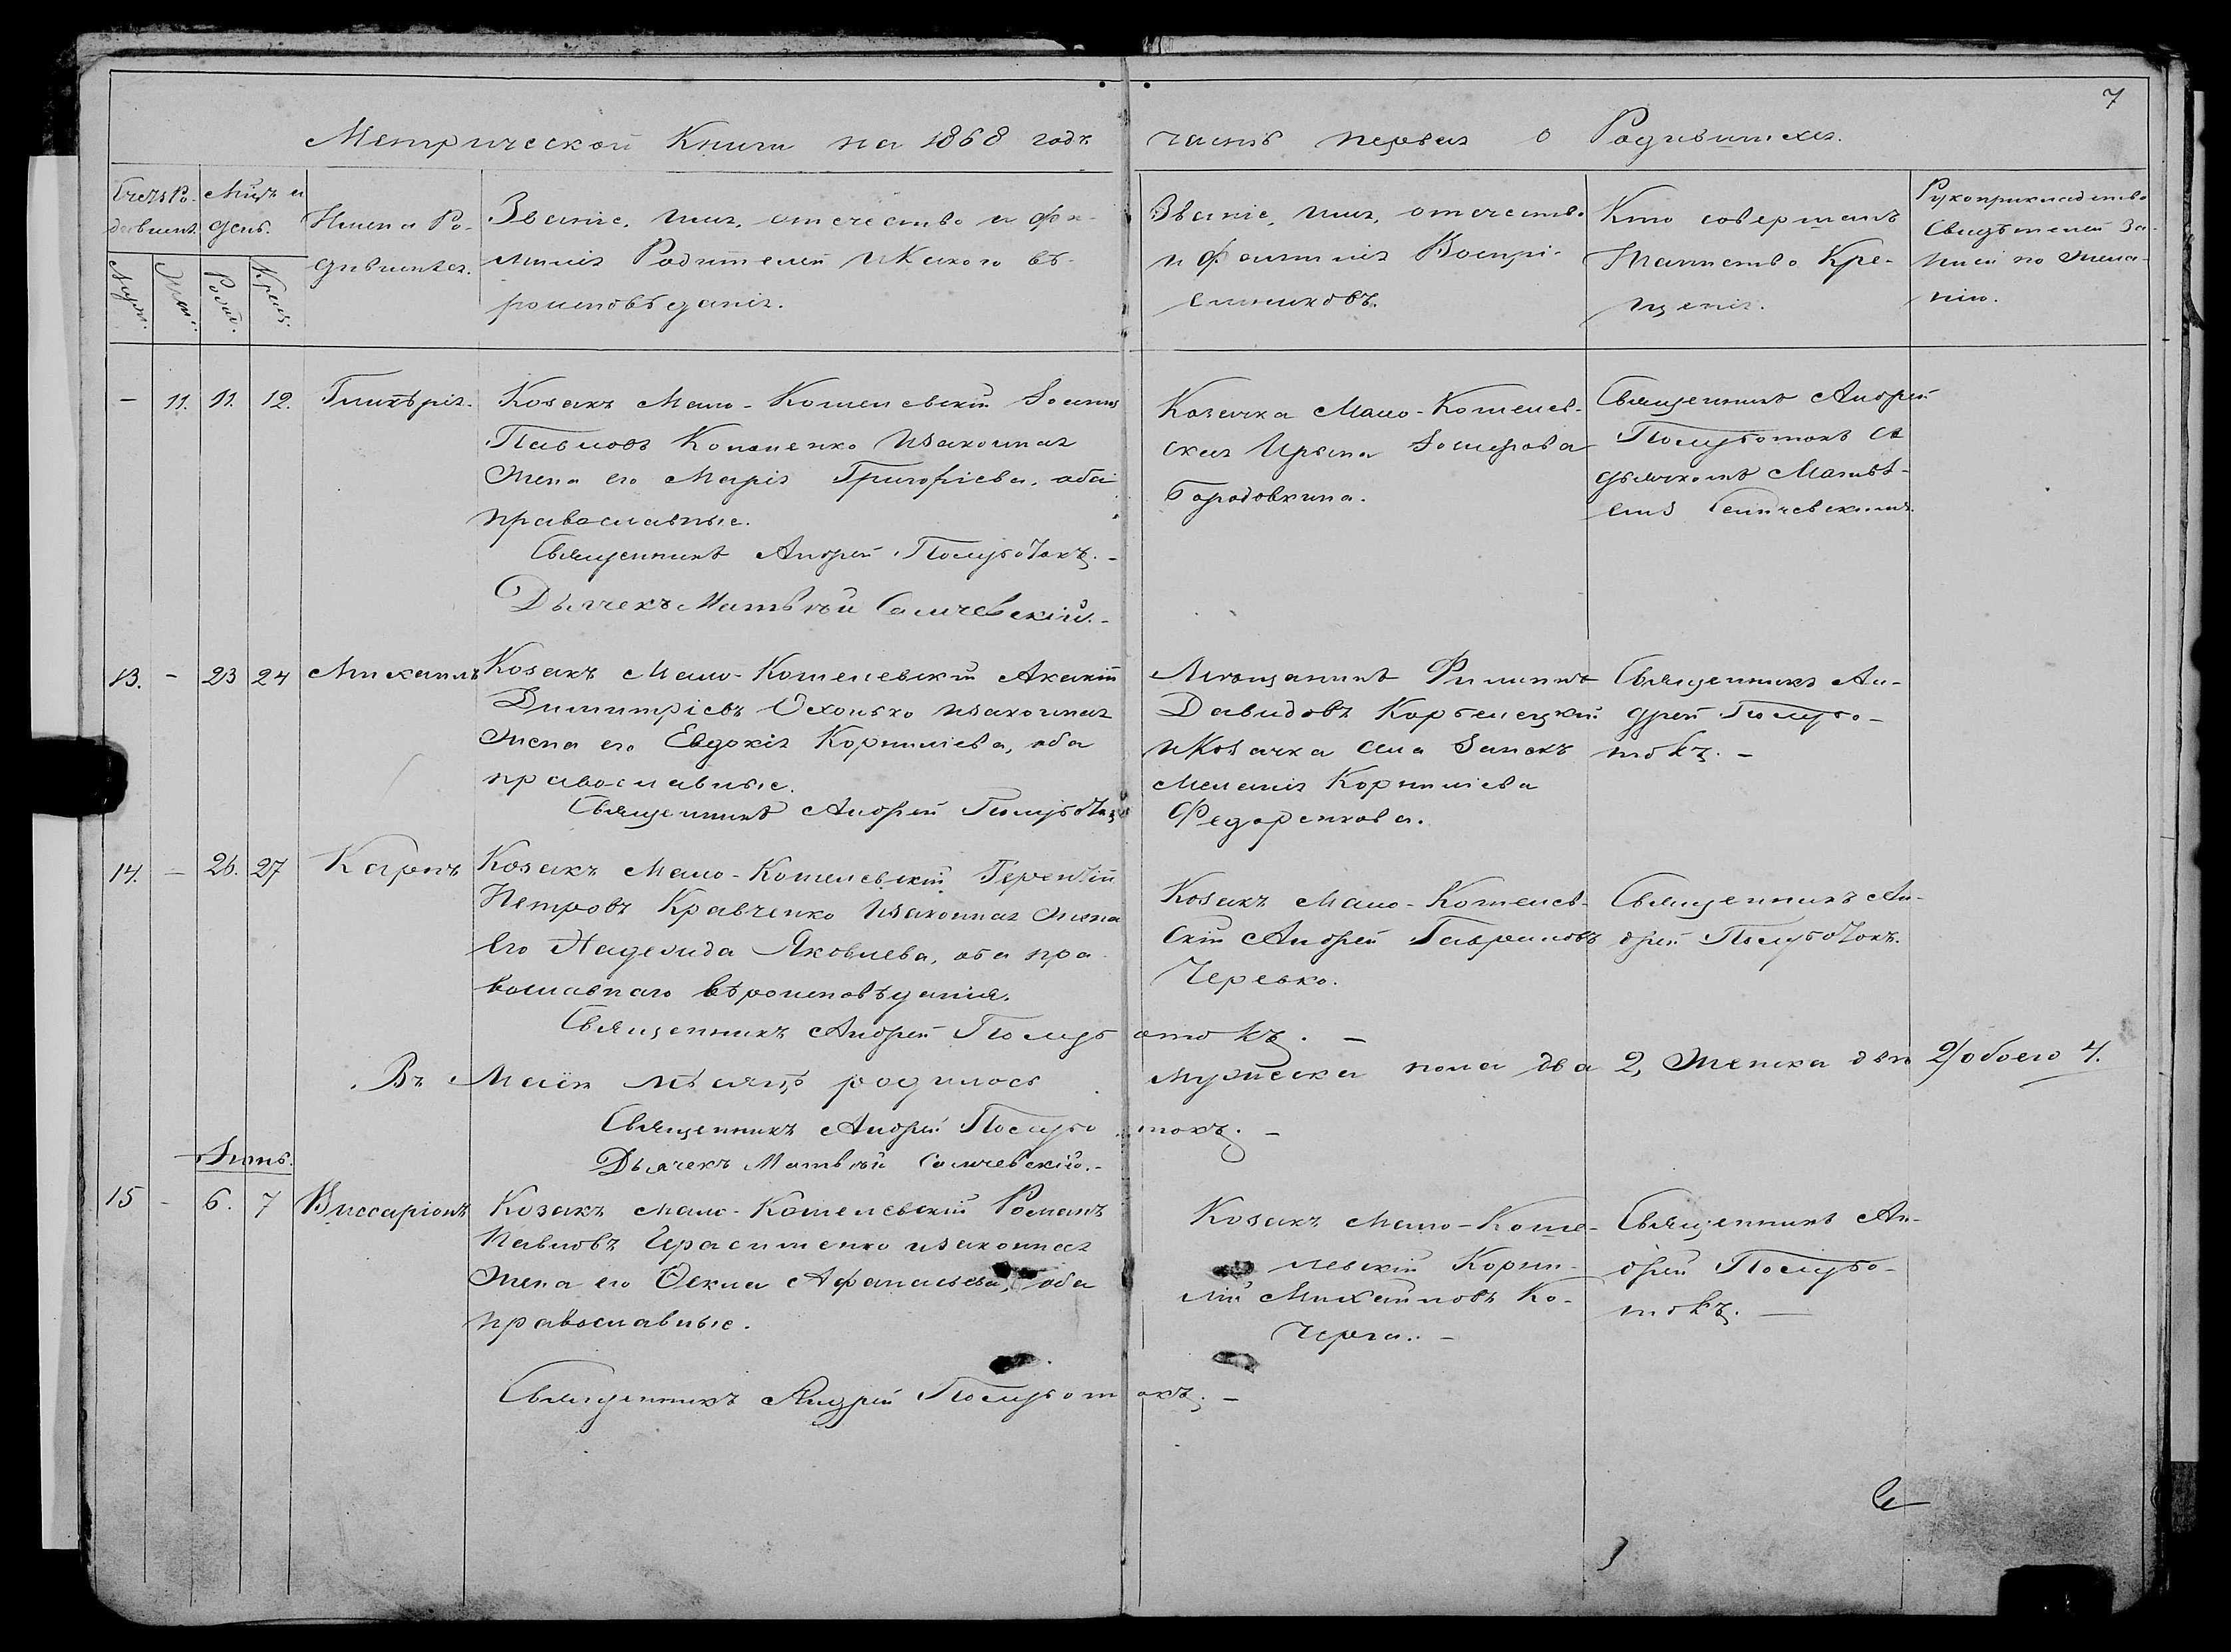 7
Метрической Книги на 1868 годъ
часть первая о Родившихся.
Счетъ Ро-
дившихся.
Мцъ и
день.
Имена Ро-
дившихся.
Званіе, имя, отечество и фа-
милія Родителей и Какого вѣ-
роисповѣданія.
Званіе, имя, отечество
и фамилія Воспрі-
емниковъ.
Кто совершалъ
Таинство Кре-
щенія.
Рукоприкладство
Свидѣтелей За-
писи по жела-
нію.
Муж.
Жен.
Рожд.
Крещ.
— 11. 11. 12. Гликѣрія.
Козакъ Мало-Кошелевскій Іоаннъ
Павловъ Кононенко и законная
жена его Марія Григоріева, оба
православные.
Священникъ Андрей Полуботокъ. -
Дьячекъ Матвѣй Самчевскій. -
Козачка Мало-Кошелев-
ская Ирина
Бородовкина.
Священникъ Андрей
Полуботокъ съ
дьячкомъ Матвѣ-
емъ Самчевскимъ.
13. - 23 24 Михаилъ
Козакъ Мало-Кошелевскій Акакій
Димитріевъ Охонько и законная
жена его Евдокія Корниліева, оба
православные.
Священникъ Андрей Полуботокъ
Мѣщанинъ Филиппъ
Давидовъ Корбелецкій
и Козачка
Меланія Корниліева
Федоренкова.
Священникъ Ан-
дрей Полубо-
токъ. -
14. — 26. 27 Карпъ
Козакъ Мало-Кошелевскій Терентій
Петровъ Кравченко и законная жена
Его Надежда Яковлева, оба пра-
вославнаго вѣроисповѣданія.
Священникъ Андрей Полуботокъ. —
Козакъ Мало-Кошелев-
скій Андрей Гавриловъ
Черевко.
Священникъ Ан-
дрей Полуботокъ.
Въ Маіи мѣсяцѣ родилось мужеска пола два 2, Женска двѣ 2, обоего 4.
Священникъ Андрей Полуботокъ. -
Дьячекъ Матвѣй Самчевскій. -
Іюнь.
15 - 6. 7 Виссаріонъ
Козакъ Мало-Кошелевскій Романъ
Павловъ Ирасименко и законная
жена его Ѳекла Афанасьева, оба
православные.
Священникъ Андрей Полуботокъ. -
Козакъ Мало-Коше-
левскій Корни-
лій Михайловъ Ко-
черга. -
Священникъ Ан-
дрей Полубо-
токъ. —